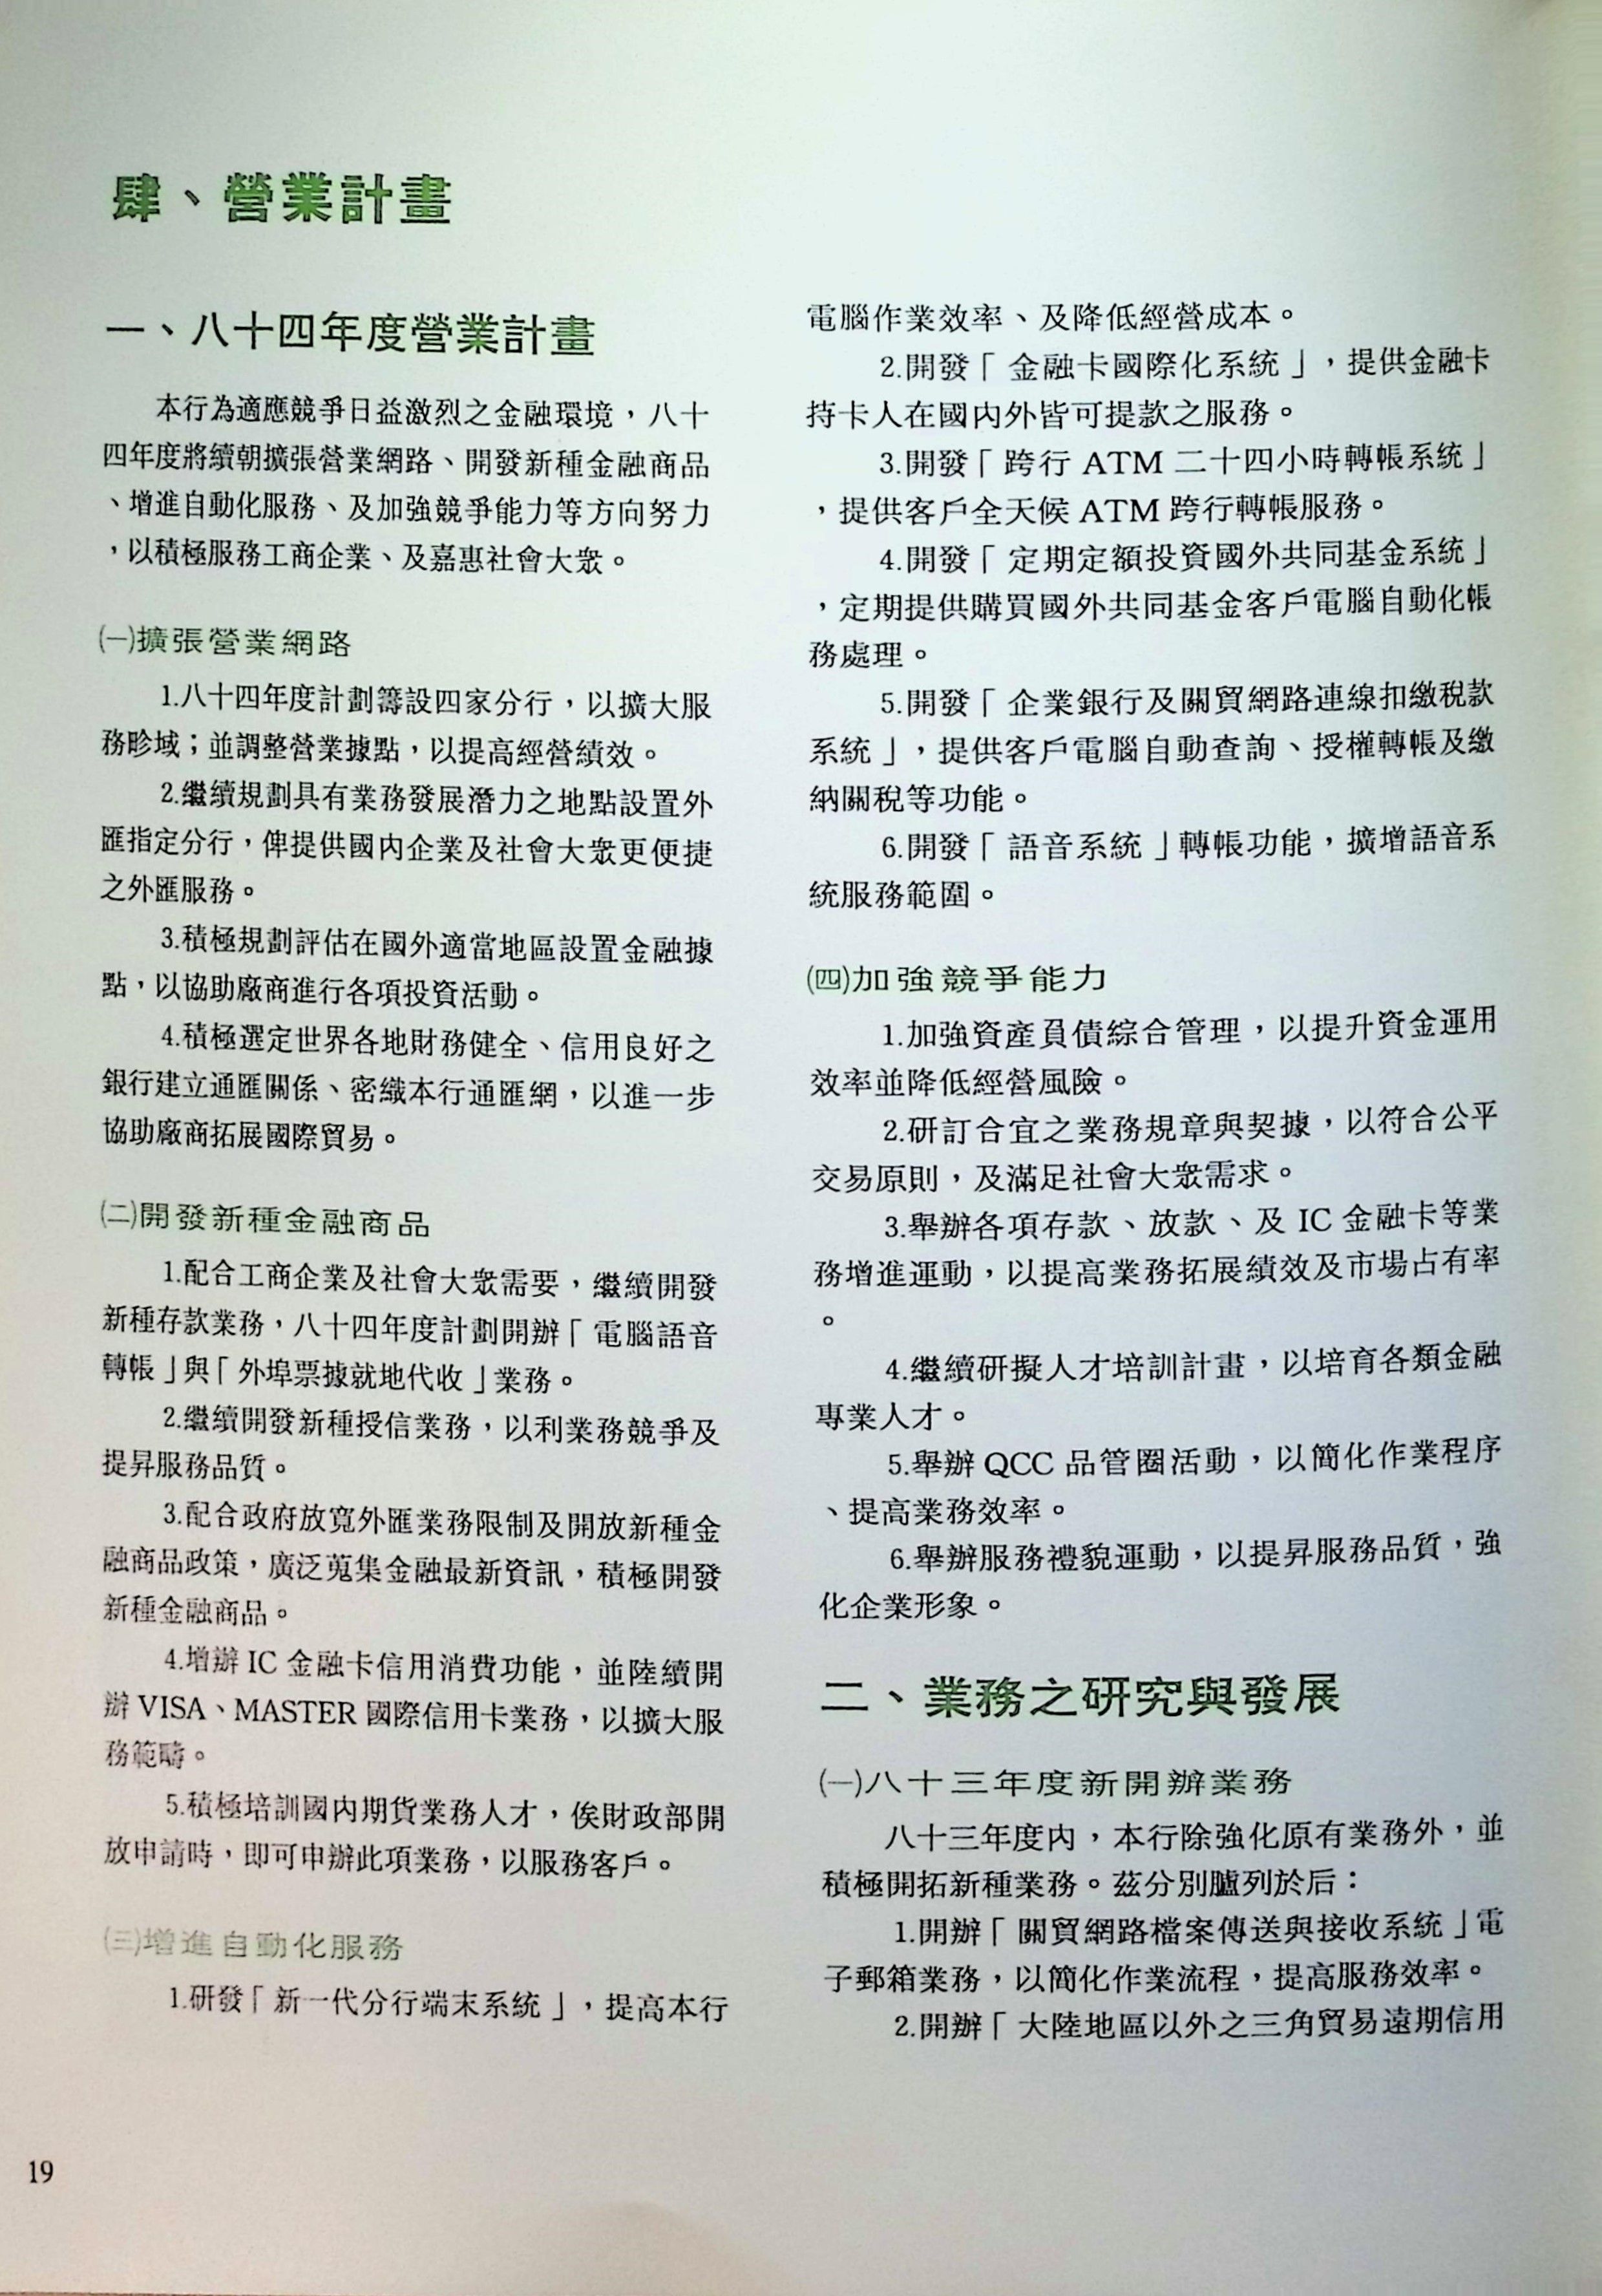 肆、營業計畫
一、八十四年度營業計畫
本行為適應競爭日益激烈之金融環境，八十
四年度將續朝擴張營業網路、開發新種金融商品
、增進自動化服務、及加強競爭能力等方向努力
，以積極服務工商企業、及嘉惠社會大眾。
㈠擴張營業網路
1.八十四年度計劃籌設四家分行，以擴大服
務畛域；並調整營業據點，以提高經營績效。
2.繼續規劃具有業務發展潛力之地點設置外
匯指定分行，俾提供國內企業及社會大眾更便捷
之外匯服務。
3.積極規劃評估在國外適當地區設置金融據
點，以協助廠商進行各項投資活動。
4.積極選定世界各地財務健全、信用良好之
銀行建立通匯關係、密織本行通匯網，以進一步
協助廠商拓展國際貿易。
㈡開發新種金融商品
1.配合工商企業及社會大眾需要，繼續開發
新種存款業務，八十四年度計劃開辦「電腦語音
轉帳」與「外埠票據就地代收」業務。
2.繼續開發新種授信業務，以利業務競爭及
提昇服務品質。
3.配合政府放寬外匯業務限制及開放新種金
融商品政策，廣泛蒐集金融最新資訊，積極開發
新種金融商品。
4.增辦 IC 金融卡信用消費功能，並陸續開
辦 VISA、MASTER 國際信用卡業務，以擴大服
務範疇。
5.積極培訓國內期貨業務人才，俟財政部開
放申請時，即可申辦此項業務，以服務客戶。
㈢增進自動化服務
1.研發「新一代分行端末系統」，提高本行
電腦作業效率、及降低經營成本。
2.開發「金融卡國際化系統」，提供金融卡
持卡人在國內外皆可提款之服務。
3.開發「跨行 ATM 二十四小時轉帳系統」
，提供客戶全天候 ATM 跨行轉帳服務。
4.開發「定期定額投資國外共同基金系統」
，定期提供購買國外共同基金客戶電腦自動化帳
務處理。
5.開發「企業銀行及關貿網路連線扣繳稅款
系統」，提供客戶電腦自動查詢、授權轉帳及繳
納關稅等功能。
6.開發「語音系統」轉帳功能，擴增語音系
統服務範圍。
㈣加強競爭能力
1.加強資產負債綜合管理，以提升資金運用
效率並降低經營風險。
2.研訂合宜之業務規章與契據，以符合公平
交易原則，及滿足社會大眾需求。
3.舉辦各項存款、放款、及 IC 金融卡等業
務增進運動，以提高業務拓展績效及市場占有率
。
4.繼續研擬人才培訓計畫，以培育各類金融
專業人才。
5.舉辦 QCC 品管圈活動，以簡化作業程序
、提高業務效率。
6.舉辦服務禮貌運動，以提昇服務品質，強
化企業形象。
二、業務之研究與發展
㈠八十三年度新開辦業務
八十三年度內，本行除強化原有業務外，並
積極開拓新種業務。茲分別臚列於后：
1.開辦「關貿網路檔案傳送與接收系統」電
子郵箱業務，以簡化作業流程，提高服務效率。
2.開辦「大陸地區以外之三角貿易遠期信用
19